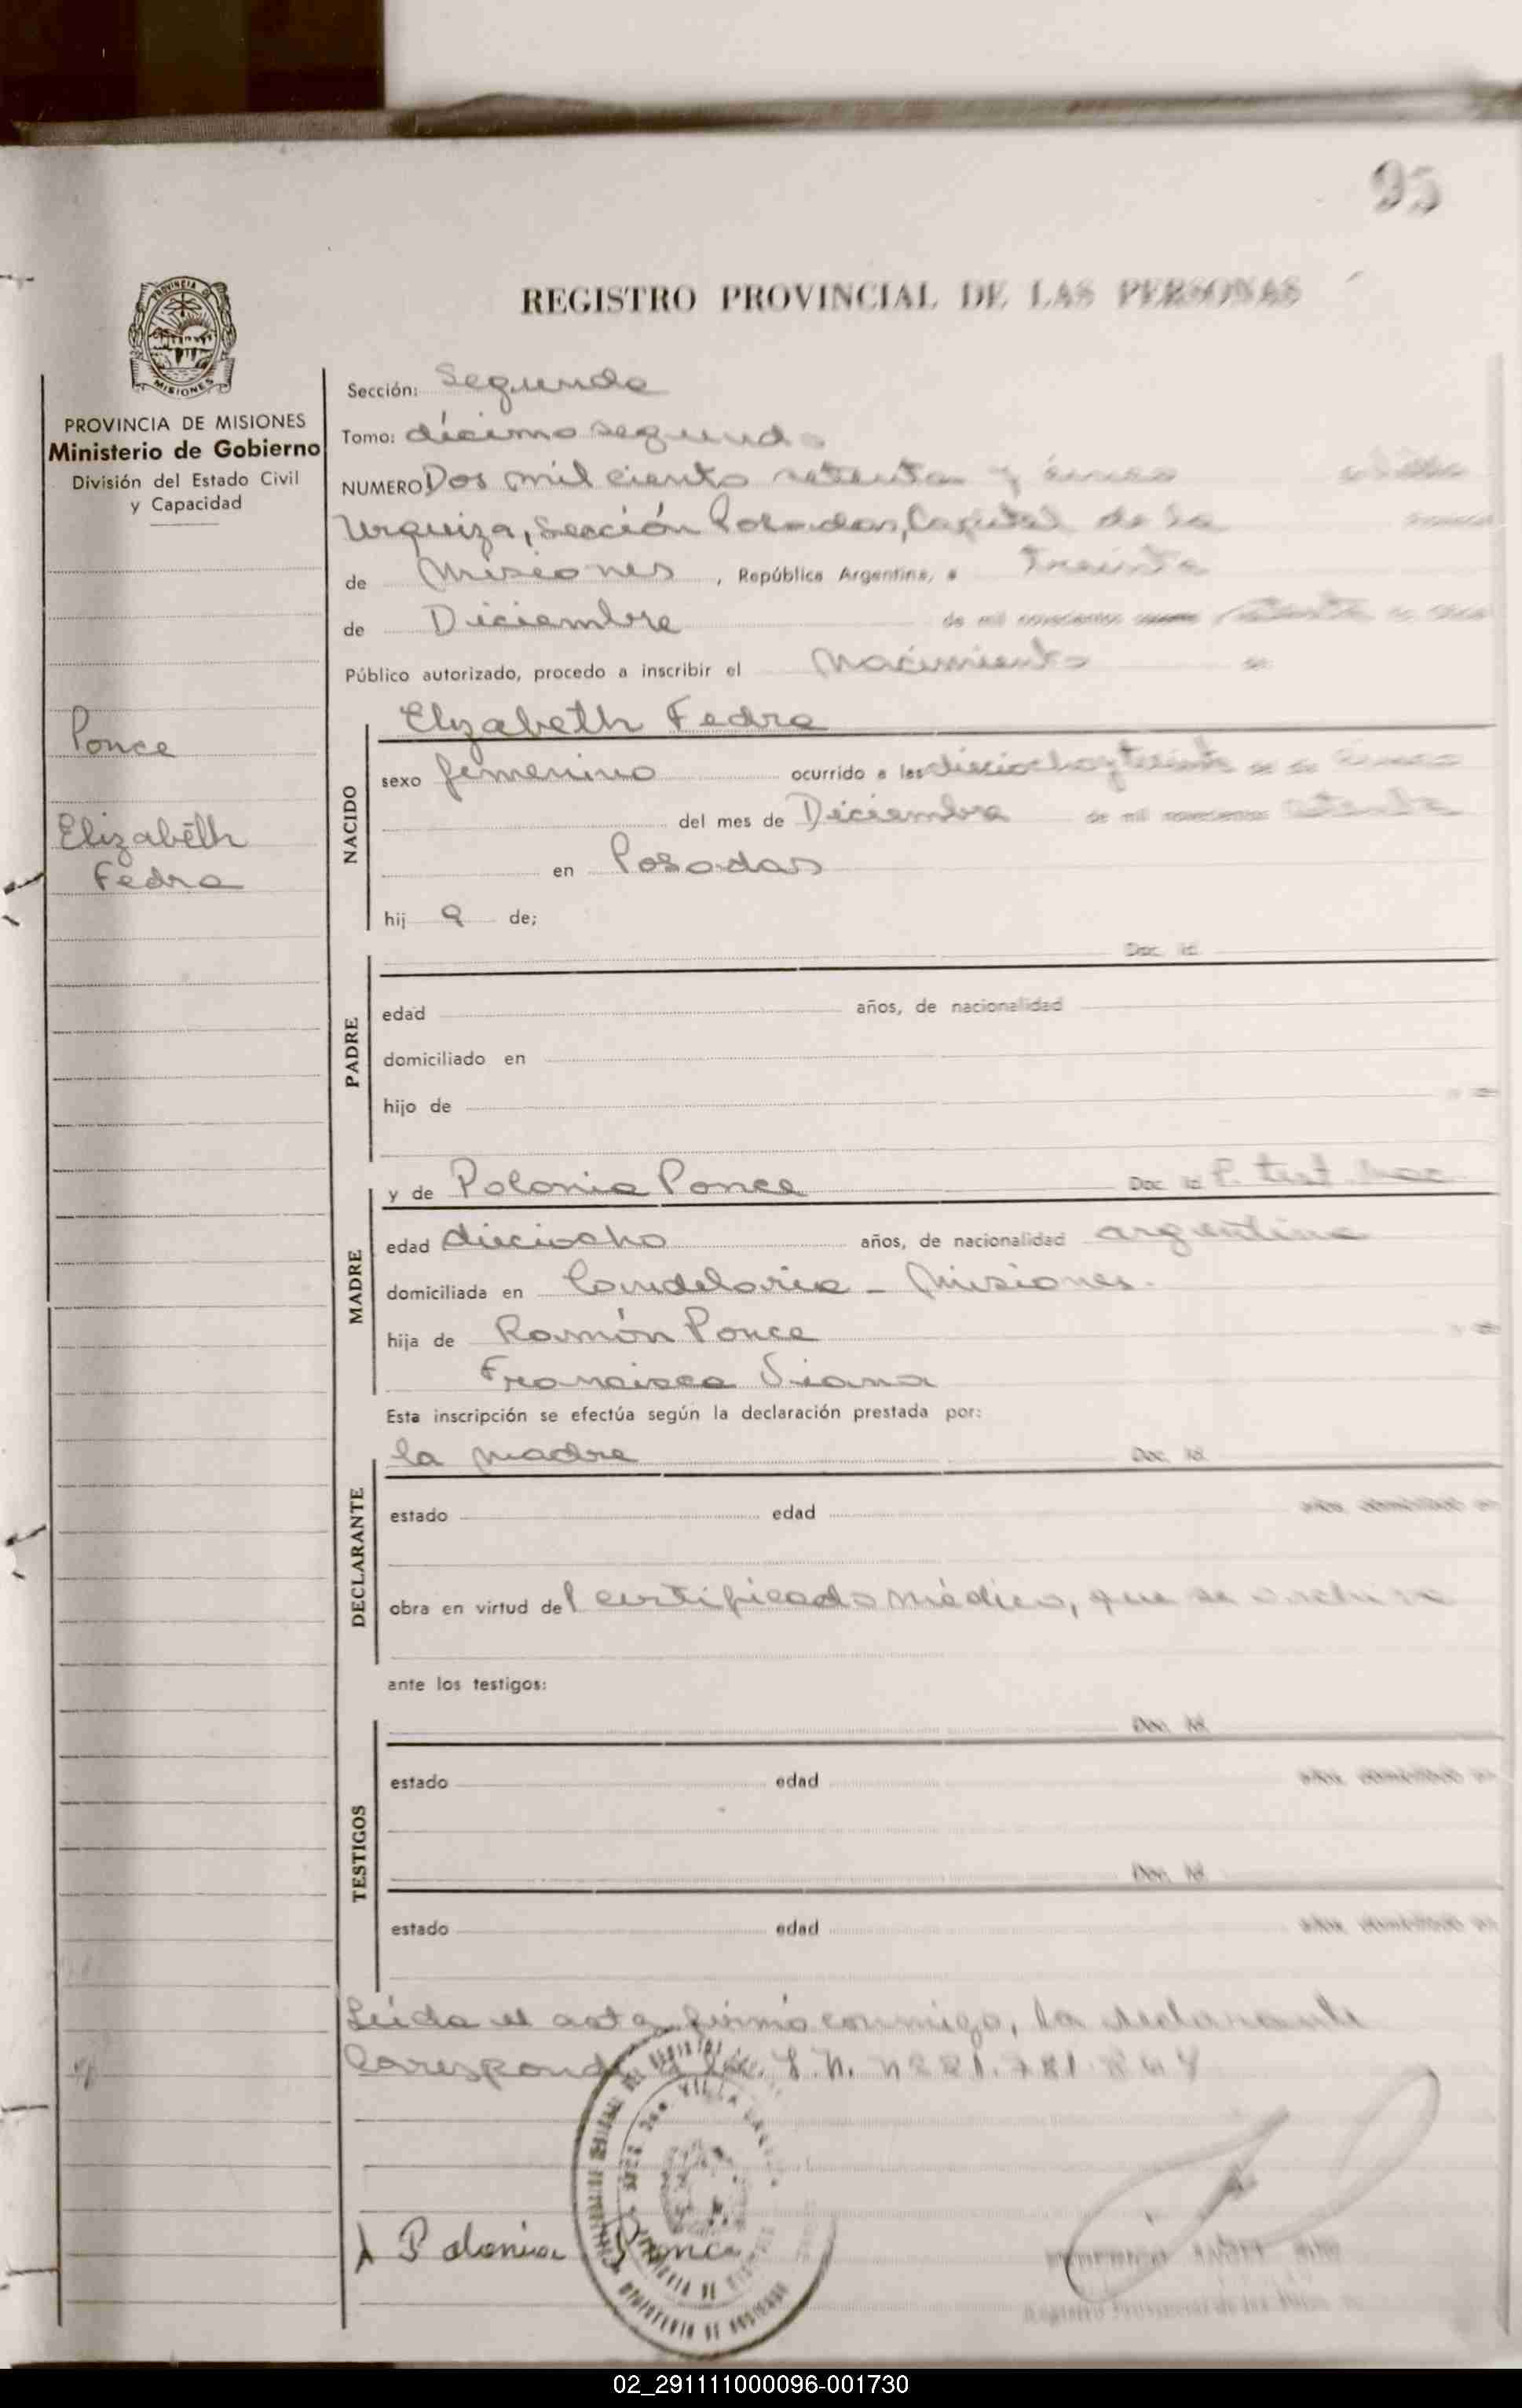 95
REGISTRO PROVINCIAL DE LAS PERSONAS
PROVINCIA DE
MISIONES
PROVINCIA DE MISIONES
Ministerio de Gobierno
División del Estado Civil
y Capacidad
Ponce
Elizabeth
Fedra
Sección: Segunda
Tomo: décimo segundo
NUMERO Dos mil ciento setenta y cinco
Urquiza, Sección Posadas, Capital de la
de Misiones, República Argentina, a Treinta
de Diciembre de mil novecientos setenta
Público autorizado, procedo a inscribir el Nacimiento de
NACIDO
Elizabeth Fedra
sexo femenino ocurrido a las dieciocho y treinta
del mes de Diciembre de mil novecientos setenta
en Posadas
hij a de;
PADRE
Doc. Id.
edad años, de nacionalidad
domiciliado en
hijo de y de
MADRE
y de Polonia Ponce Doc. Id.
edad dieciocho años, de nacionalidad argentina
domiciliada en Candelaria - Misiones.
hija de Ramón Ponce y de
Francisca Viana
Esta inscripción se efectúa según la declaración prestada por:
DECLARANTE
la madre Doc. Id.
estado edad años, domiciliado en
obra en virtud del certificado médico, que se archiva
ante los testigos:
TESTIGOS
Doc. Id.
estado edad años, domiciliado en
Doc. Id.
estado edad años, domiciliado en
Leída el acta, firmó conmigo, la declarante
Corresponde
Polonia Ponce
MINISTERIO DE GOBIERNO
02_291111000096-001730